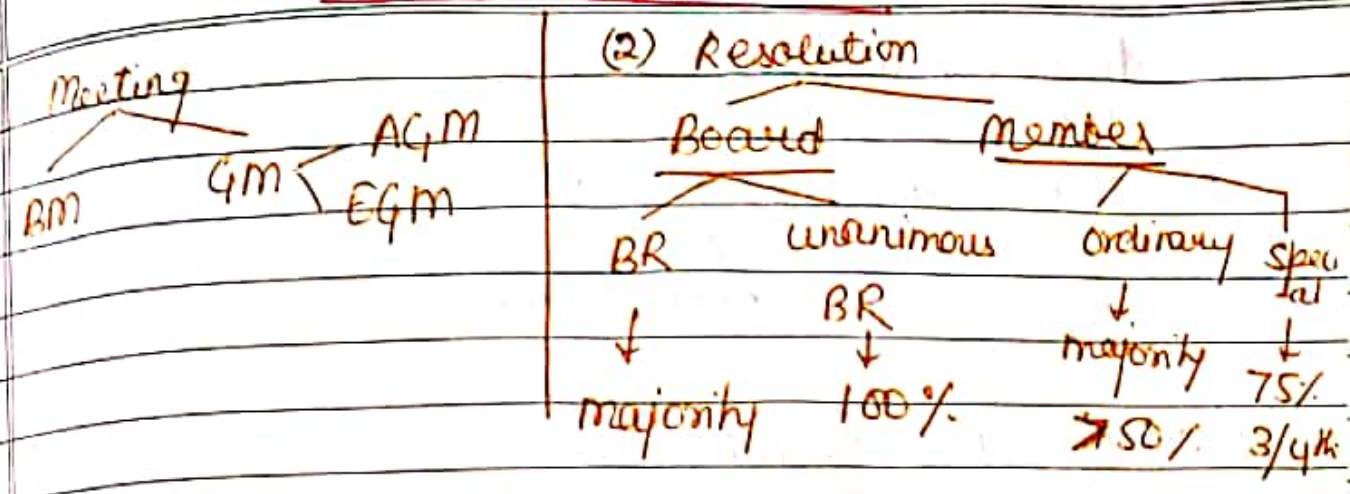 Meeting
BM
GM
AGM
EGM
(2) Resolution
Board Member
BR unanimous BR ordinary special
majority 100% majority 75%
>50% 3/4th